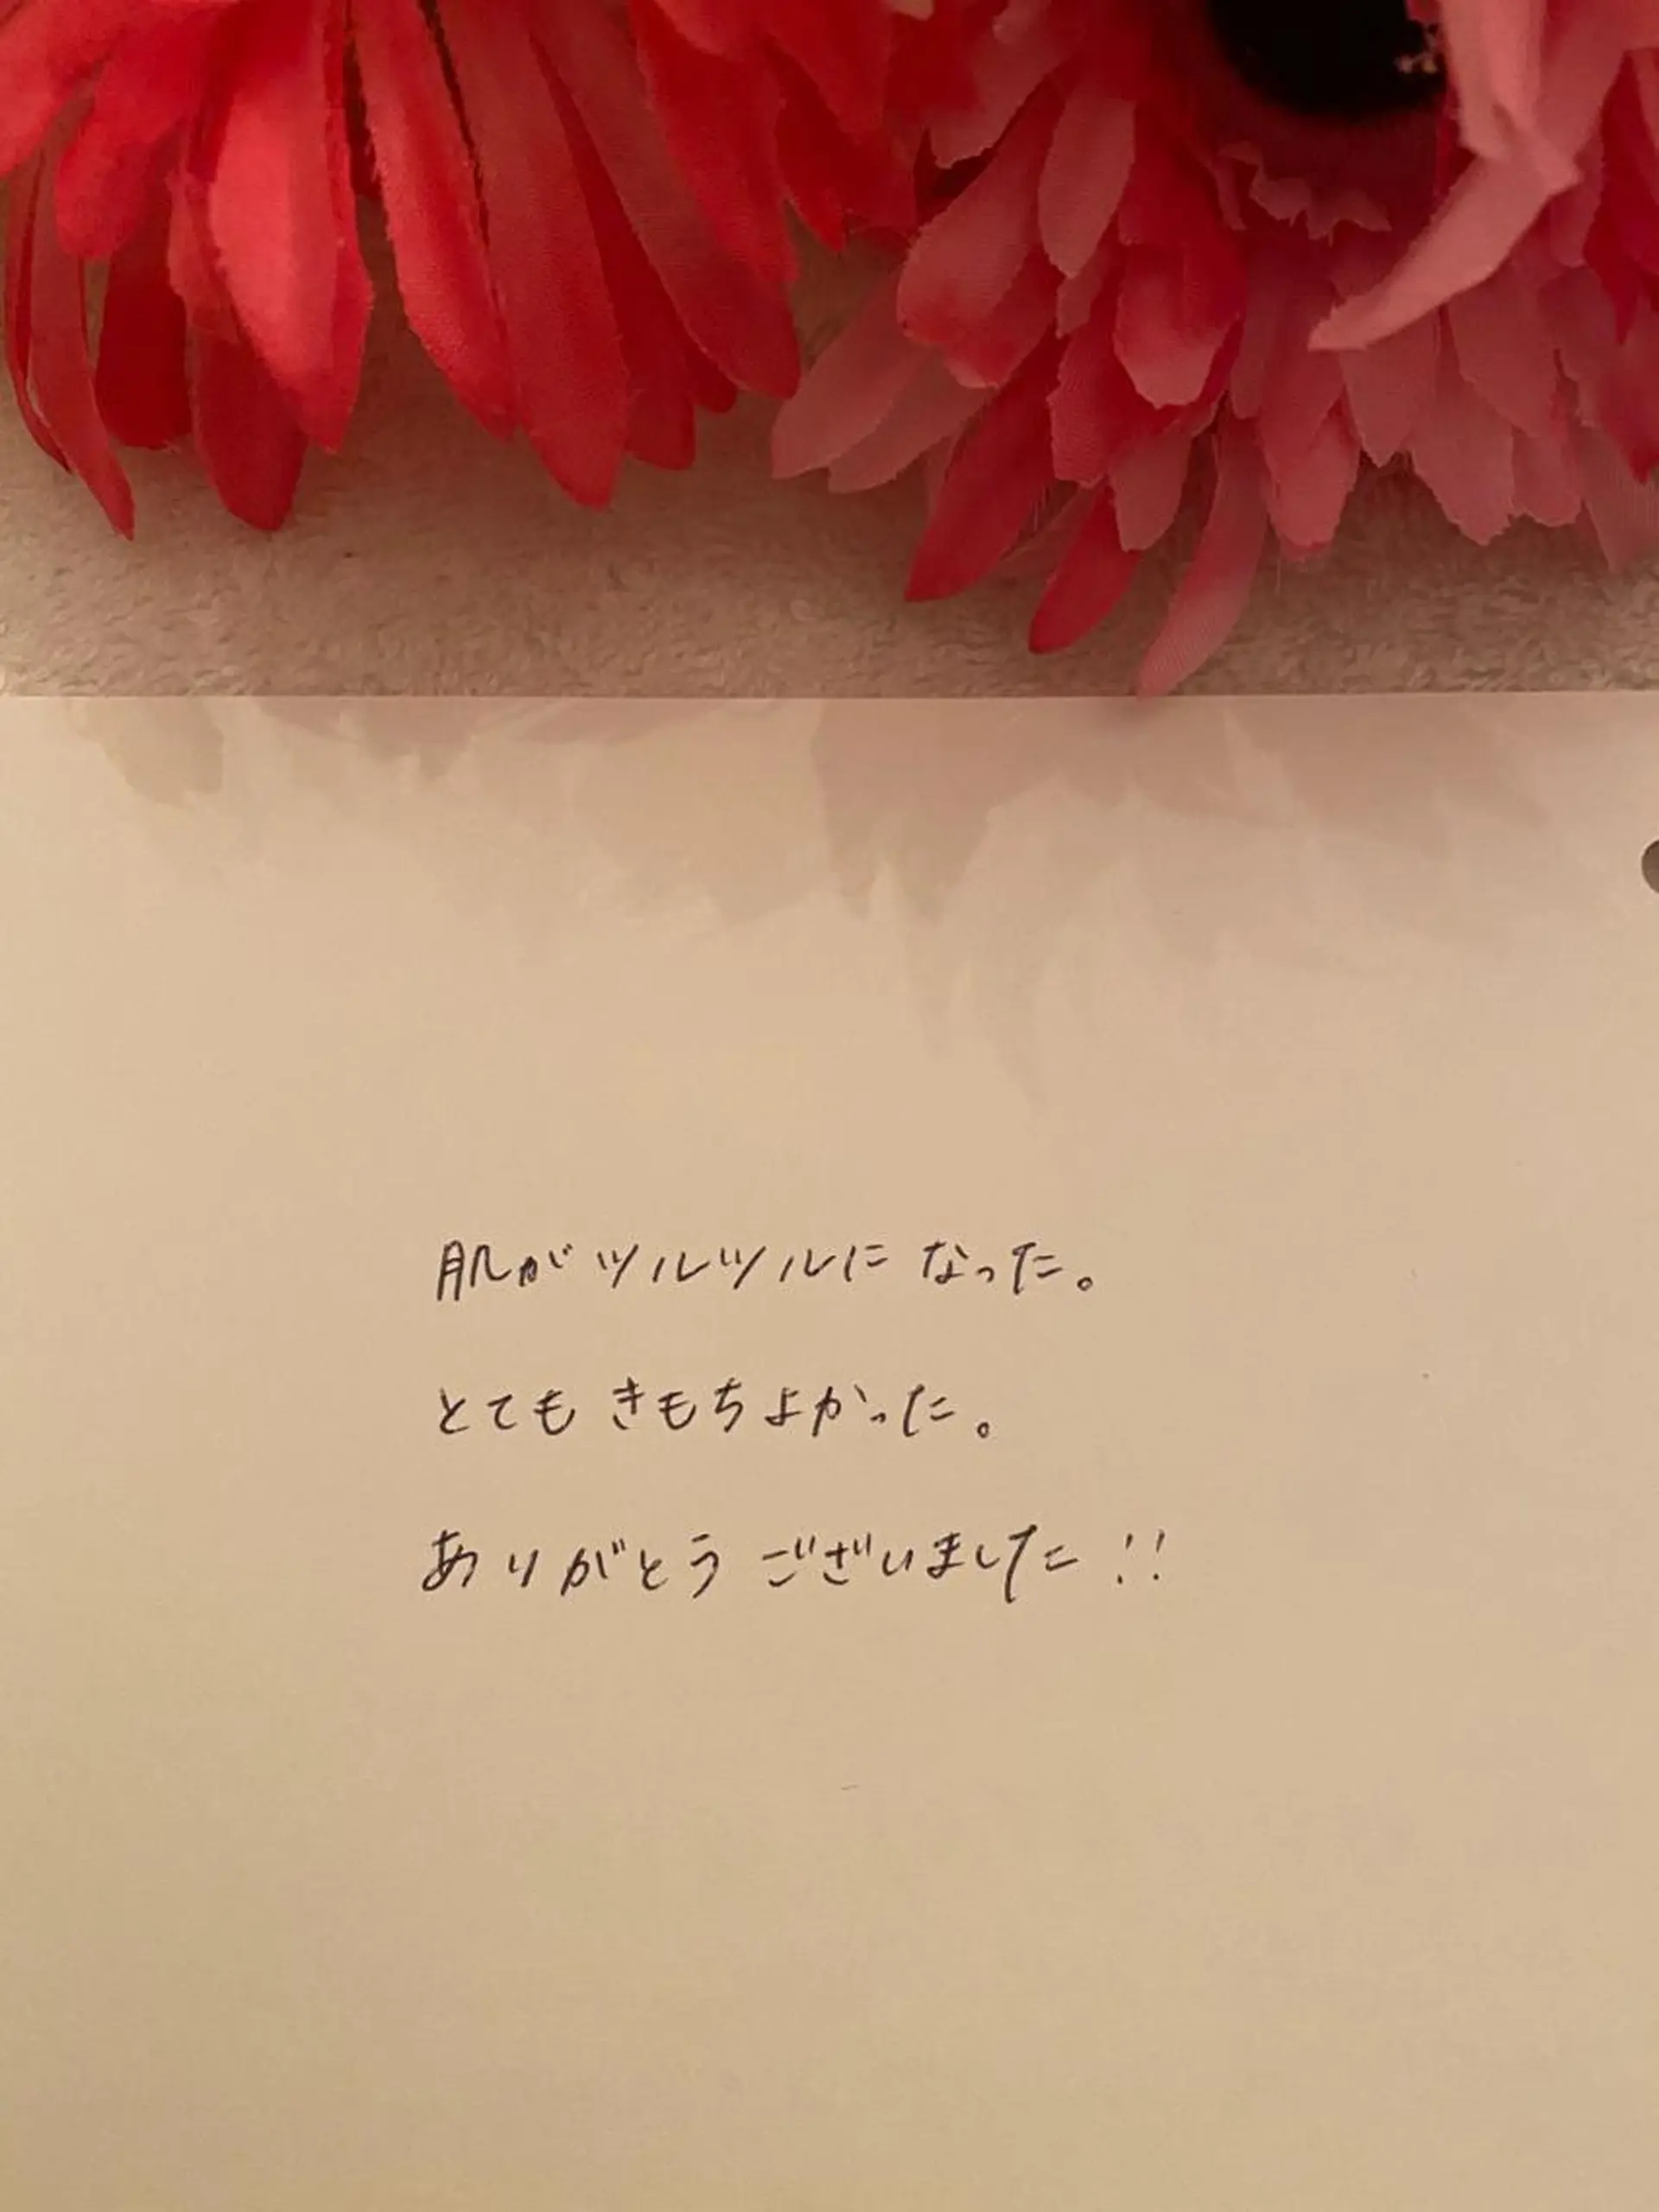 肌がツルツルに なった。
とても きもちよかった。
ありがとう ございました!!